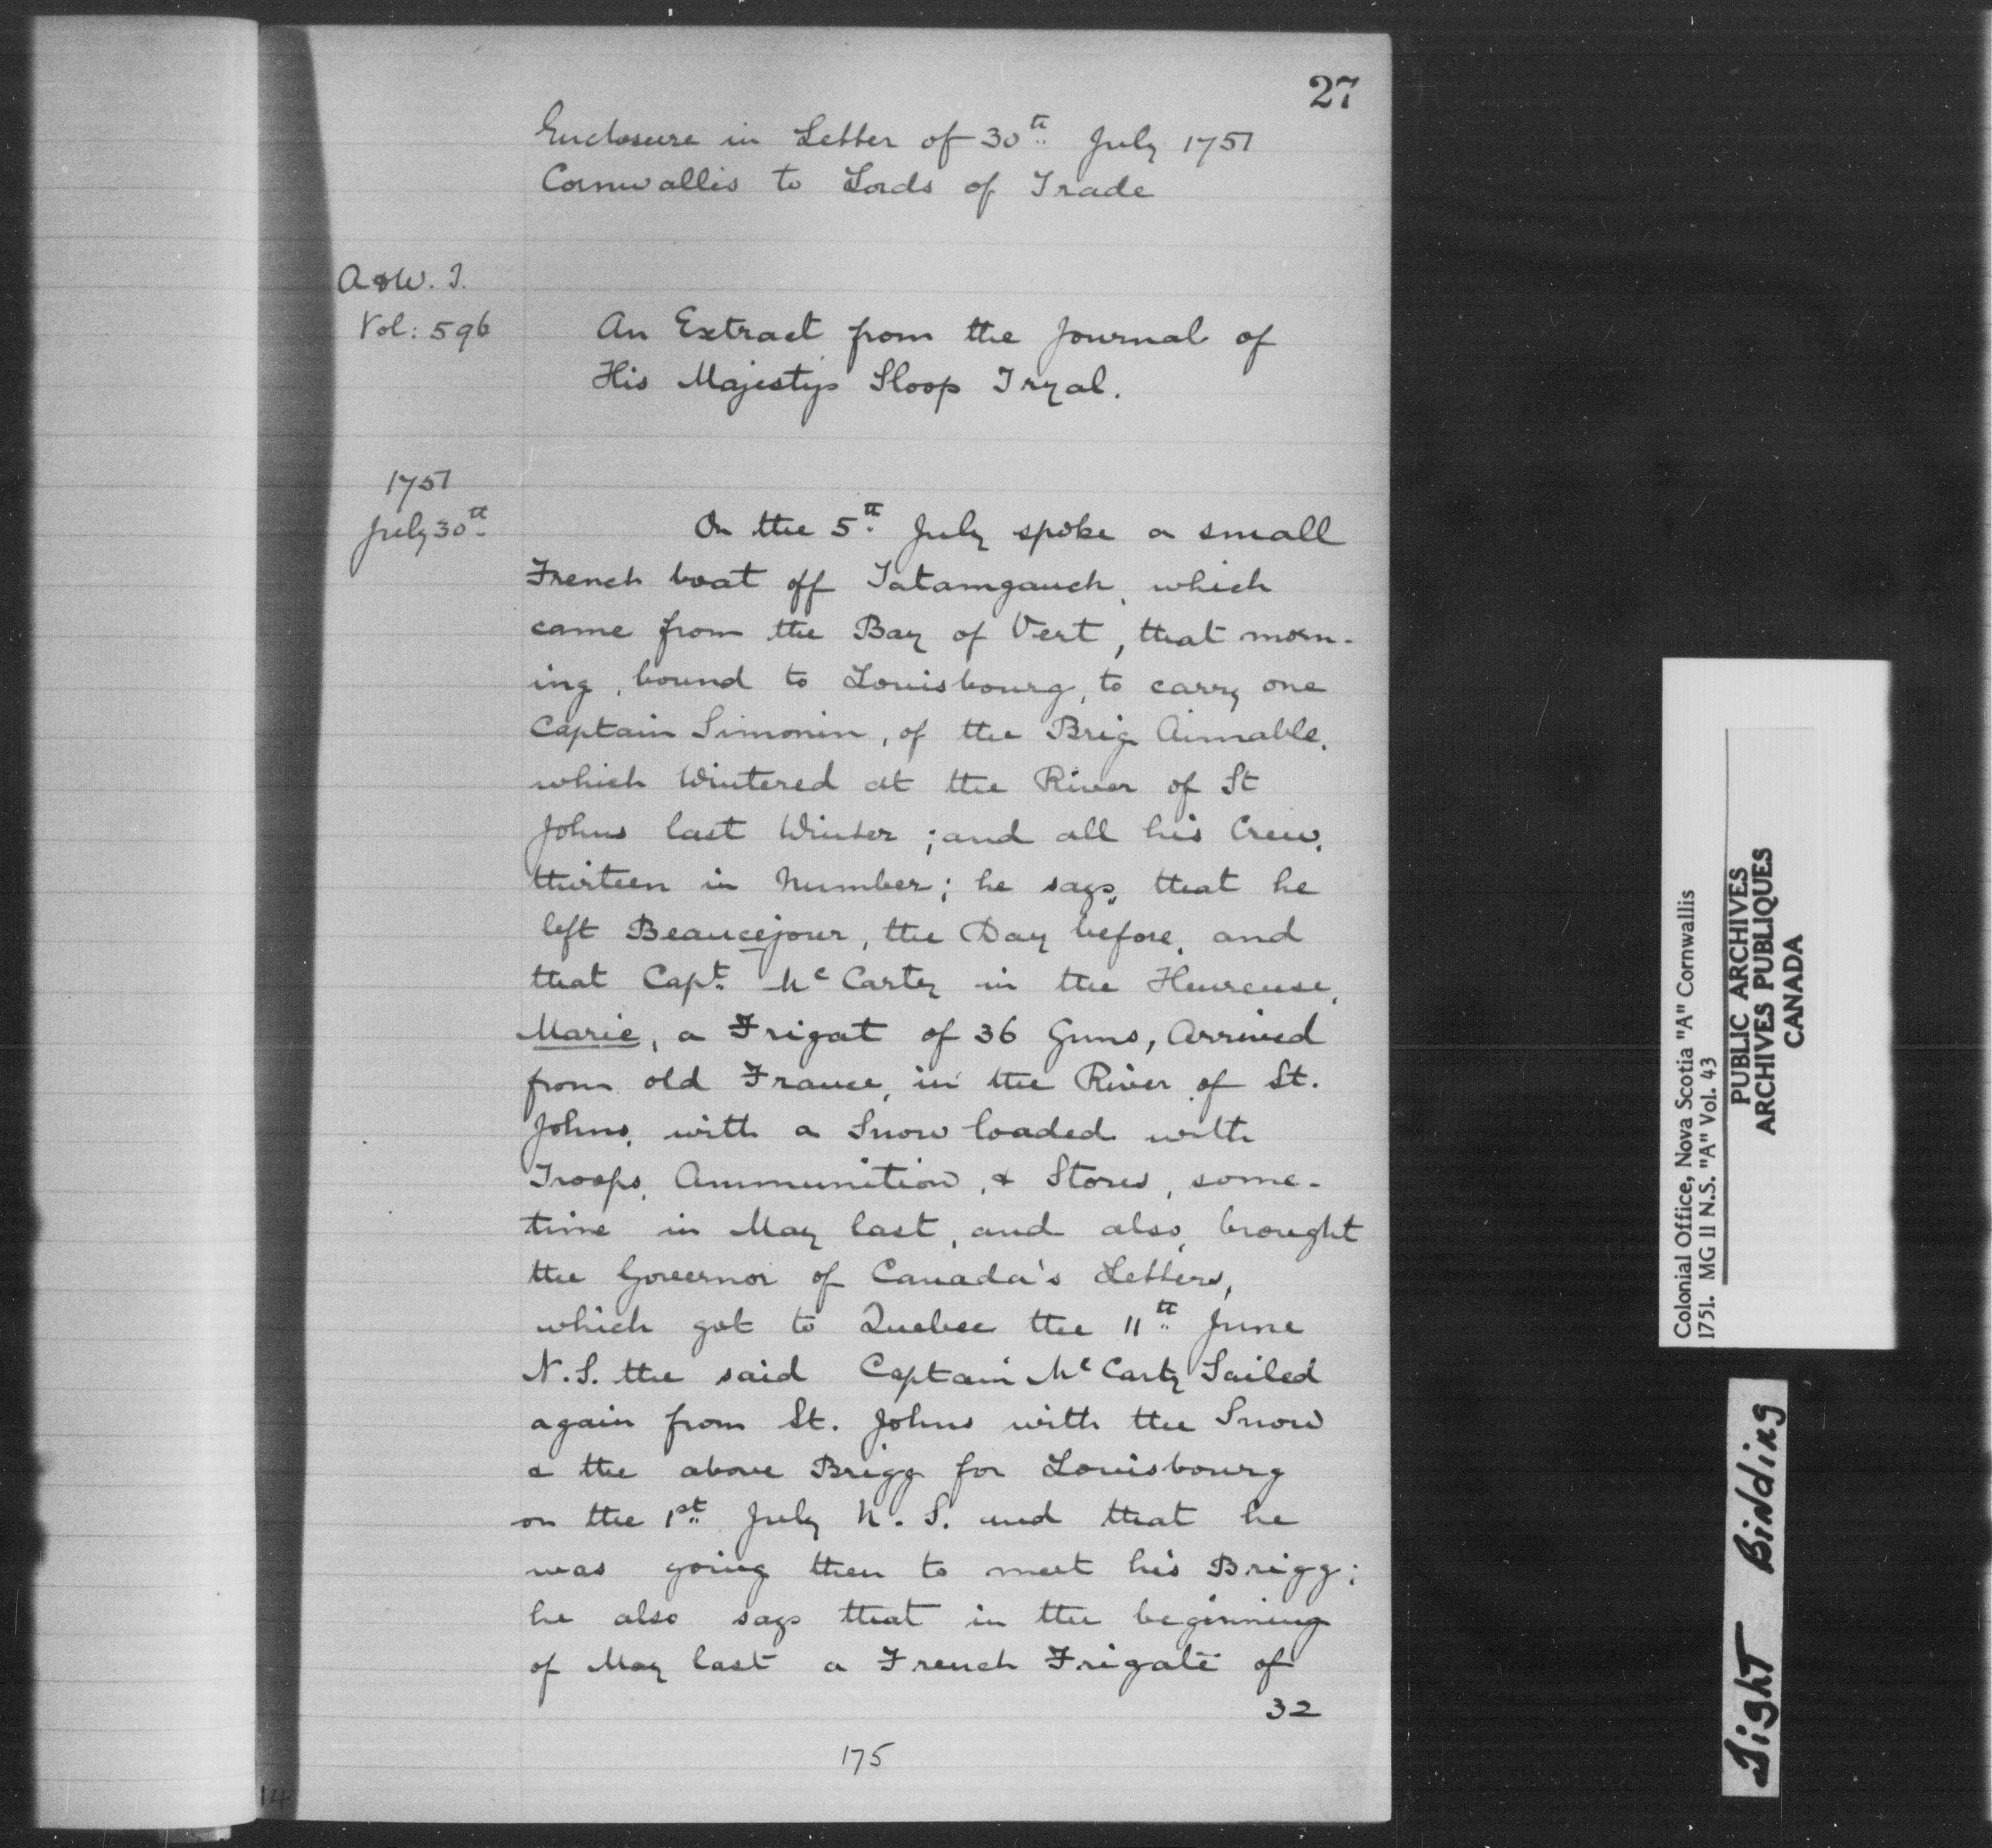 27
Enclosure in Letter of 30th July 1751
Cornwallis to Lords of Trade
A & W. I.
Vol: 596
An Extract from the Journal of
His Majestys Sloop Tryal.
1751
July 30th
On the 5th July spoke a small
French boat off Tatamgauch, which
came from the Bay of Vert, that morn-
ing, bound to Louisbourg, to carry one
Captain Simonin, of the Brig Aimable,
which Wintered at the River of St
Johns last Winter; and all his Crew,
thirteen in Number; he says, that he
left Beaucejour, the Day before, and
that Capt. Mc Carty in the Heureuse,
Marie, a Frigat of 36 Guns, Arrived
from old France, in the River of St.
Johns, with a Snow loaded with
Troops, Ammunition, & Stores, some-
time in May last, and also, brought
the Governor of Canada's Letters,
which got to Quebec the 11th June
N.S. the said Captain Mc Carty Sailed
again from St. Johns with the Snow
& the above Brigg for Louisbourg
on the 1st July N.S. and that he
was going then to meet his Brigg;
he also says that in the beginning
of May last a French Frigate of
32
175
14
Colonial Office, Nova Scotia "A" Cornwallis
1751. MG 11 N.S. "A" Vol. 43
PUBLIC ARCHIVES
ARCHIVES PUBLIQUES
CANADA
Tight Binding